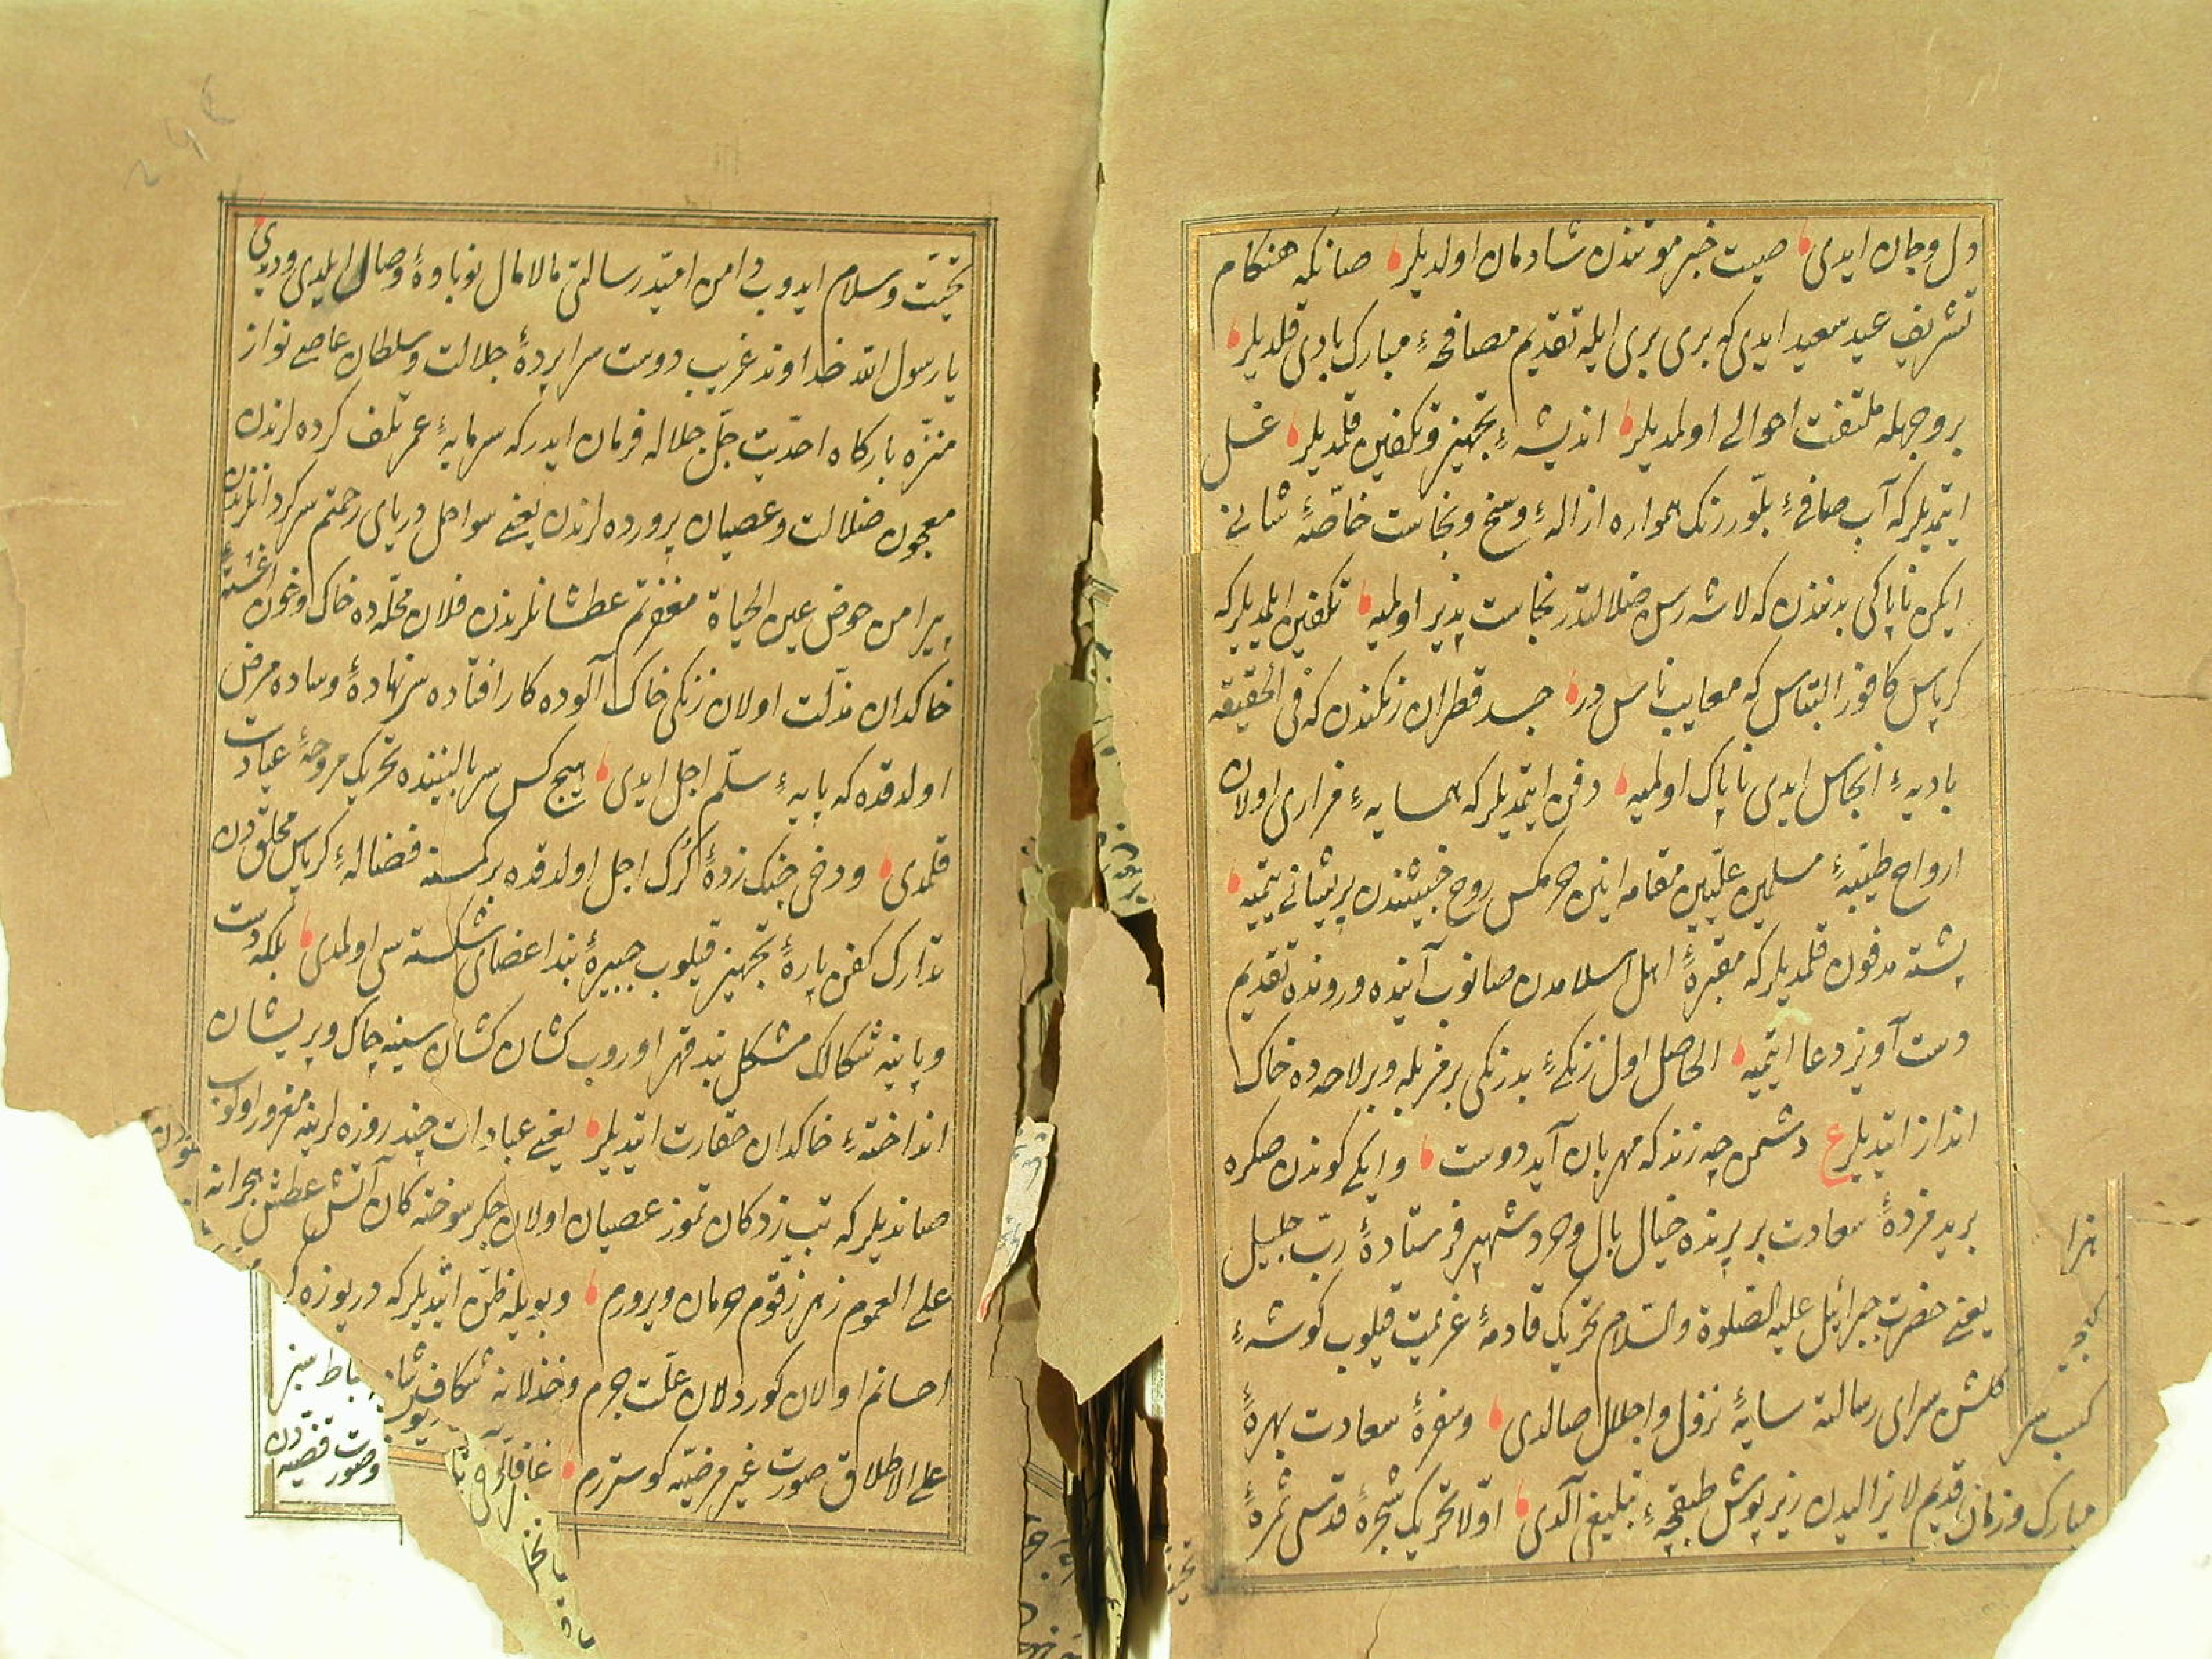 دل و جان ایدی صیت خبر موتندن شادمان اولدیلر صانکه هنکام
تشریف عید سعید ایدی که بری بری ایله تقدیم مصافحهٔ مبارک بادی قلدیلر
بر وجهله ملتفت احوالی اولمدیلر اندیشهٔ تجهیز و تکفین قلمدیلر غسل
ایتمدیلر که آب صافیٔ بلور رنک همواره ازالهٔ وسخ و نجاست خاصّهٔ شانی
ایکن ناپاکی بدنندن که لاشه رس ضلالتدر نجاست پذیر اولمیه تکفین ایلمدیلر که
کرپاس کافور التباس که معایب ناس در جسد قطران رنکندن که فی الحقیقه
بادیهٔ انجاس ایدی ناپاک اولمیه دفن ایتمدیلر که همسایهٔ مزاری اولان
ارواح طیبهٔ مسلمین علیین مقامه این روح خبیثندن پریشانی یتمیه
پشته مدفون قلمدیلر که مقبرهٔ اهل اسلامدن صانوب آینده و رونده تقدیم
دست آویز دعا ایتمیه الحاصل اول زنکیٔ بد رنکی بر مزبله و بر لاحده خاک
انداز ایتدیلر ع دشمن چه زند که مهربان آید دوست و ایکی کوندن صکره
برید مژدهٔ سعادت بر پرنده خیال بال وجود شهپر فرستادهٔ ربّ جلیل
یعنی حضرت جبرائیل علیه الصلوة والسلام تحریک قادمهٔ عزیمت قیلوب کوشهٔ
کلشن سرای رسالته سایهٔ نزول و اجلال صالدی و سفرهٔ سعادت بهرهٔ
مبارک فرمان قدیم لا یزالیدن زیر پوش طبقچهٔ تبلیغی آلدی اوّلا تحریک شجرهٔ قدسی ثمرهٔ
تحیّت و سلام ایدوب دامن امید رسالتی مالامال نوباوهٔ وصال ایلدی و دیدی
یا رسول الله خداوند غریب دوست سراپردهٔ جلالت و سلطان عاصی نواز
منزّه بارکاه احدّیت جلّ جلاله فرمان ایدر که سرمایهٔ عمر تلف کرده لرندن
معجون ضلالت و عصیان پرورده لرندن یعنی سواحل دریای رحمتم سرکردانلرندن
پیرامن حوض عین الحیاة مغفرتم عطشانلرندن فلان محلّه ده خاک و خون آغشتهٔ
خاکدان مذلّت اولان زنکی خاک آلوده کار افتاده سرنهادهٔ وساده مرض
اولدقده که پایهٔ سلّم اجل ایدی هیچ کس سر بالینینده تحریک مروحهٔ عیادت
قلمدی و دخی چنک زدهٔ کرک اجل اولدقده بر کمسنه فضالهٔ کرپاس محلق دن
تدارک کفن پارهٔ تجهیز قیلوب جبیرهٔ بند اعضای شکسته سی اولمدی بلکه دست
و پاینه شکالک مشکل بند قهر اوروب کشان کشان سینه چاک و پریشان
انداختهٔ خاکدان حقارت ایتدیلر یعنی عبادات چند روزه لرینه مغرور اولوب
صاندیلر که تب زدکان تموز عصیان اولان جکر سوخته کان آتش عطش هجرانه
علی العموم زهر زقّوم حرمان ویرورم و بویله ظنّ ایتدیلر که دریوزه
احسانم اولان کوردلان علّت جرم و خذلانه شکاف
علی الاطلاق صورت غیر مرضیّه کوسترم
و صورت قضیه دن